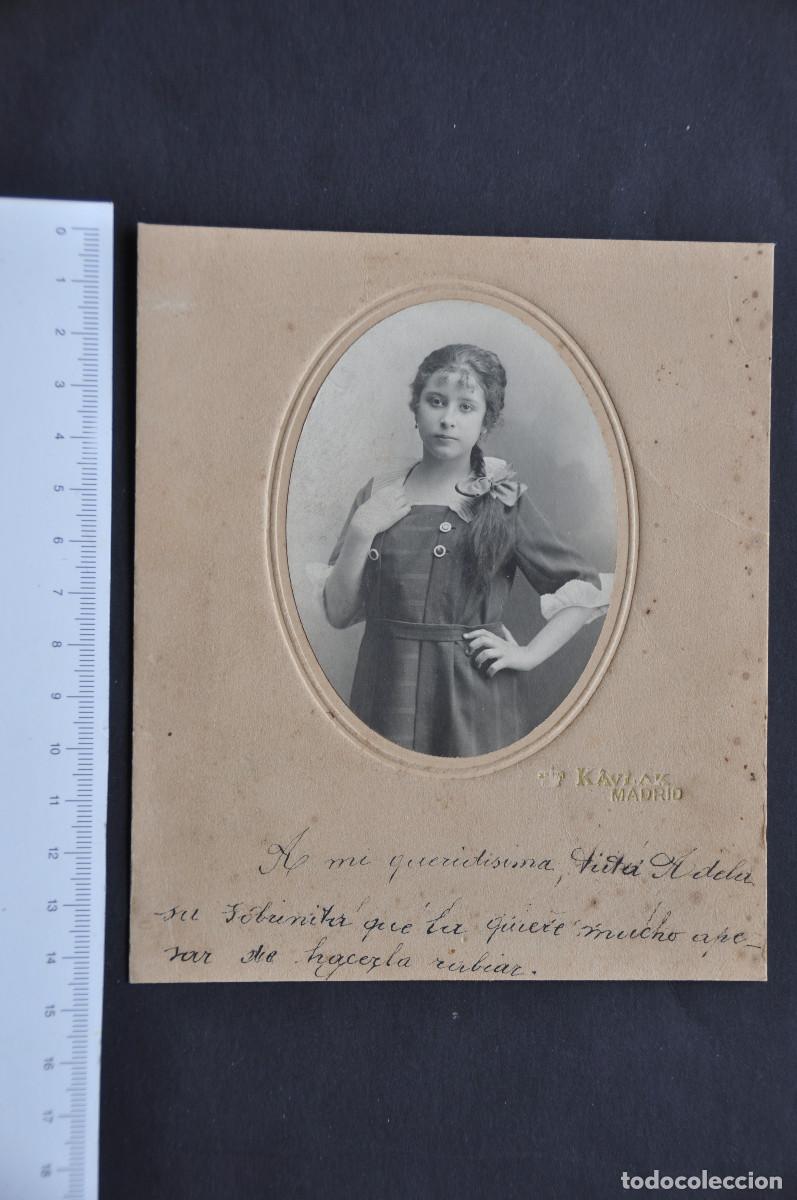 0
1
2
3
4
5
6
7
8
9
10
11
12
13
14
15
16
17
18
KAVLAK
MADRID
A mi queridisima, tiita Adela
su sobrinita que la quiere mucho ape-
sar de hacerla rabiar.
todocoleccion